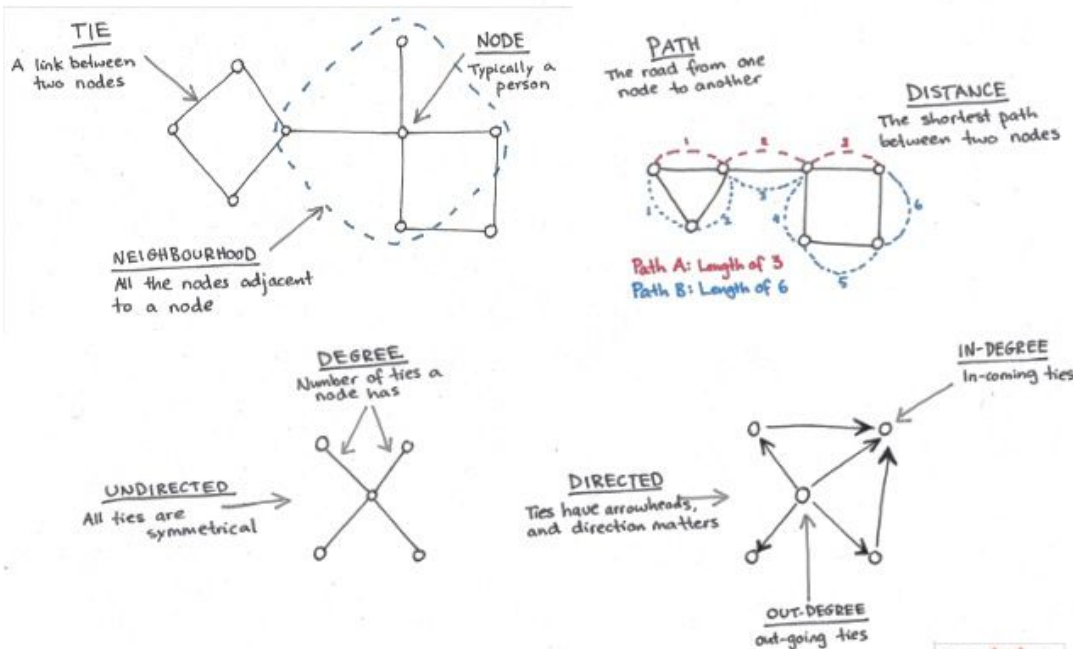 TIE
A link between
two nodes
NODE
Typically a
person
NEIGHBOURHOOD
All the nodes adjacent
to a node
PATH
The road from one
node to another
DISTANCE
The shortest path
between two nodes
1
2
3
1
2
3
4
5
6
Path A: Length of 3
Path B: Length of 6
DEGREE
Number of ties a
node has
UNDIRECTED
All ties are
symmetrical
IN-DEGREE
In-coming ties
DIRECTED
Ties have arrowheads,
and direction matters
OUT-DEGREE
out-going ties